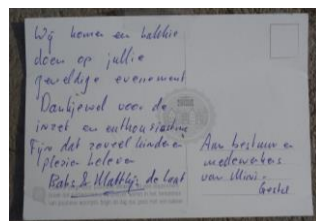 Wij komen en
doen op jullie
geweldige evenement
Dankjewel voor de
inzet en enthousiasme
Fijn dat zoveel kinderen
plezier beleven
Babs & Matthijs de
Aan bestuur en
medewerkers
van Mini-
Gestel